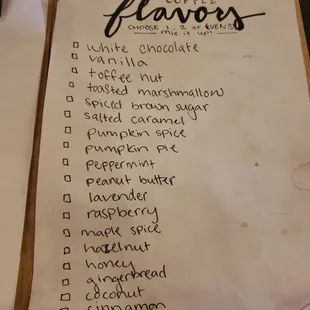 COFFEE
flavors
CHOOSE 1, 2 or EVEN 3
mix it up!
white chocolate
vanilla
toffee nut
toasted marshmallow
spiced brown sugar
salted caramel
pumpkin spice
pumpkin pie
peppermint
peanut butter
lavender
raspberry
maple spice
hazelnut
honey
gingerbread
coconut
cinnamon